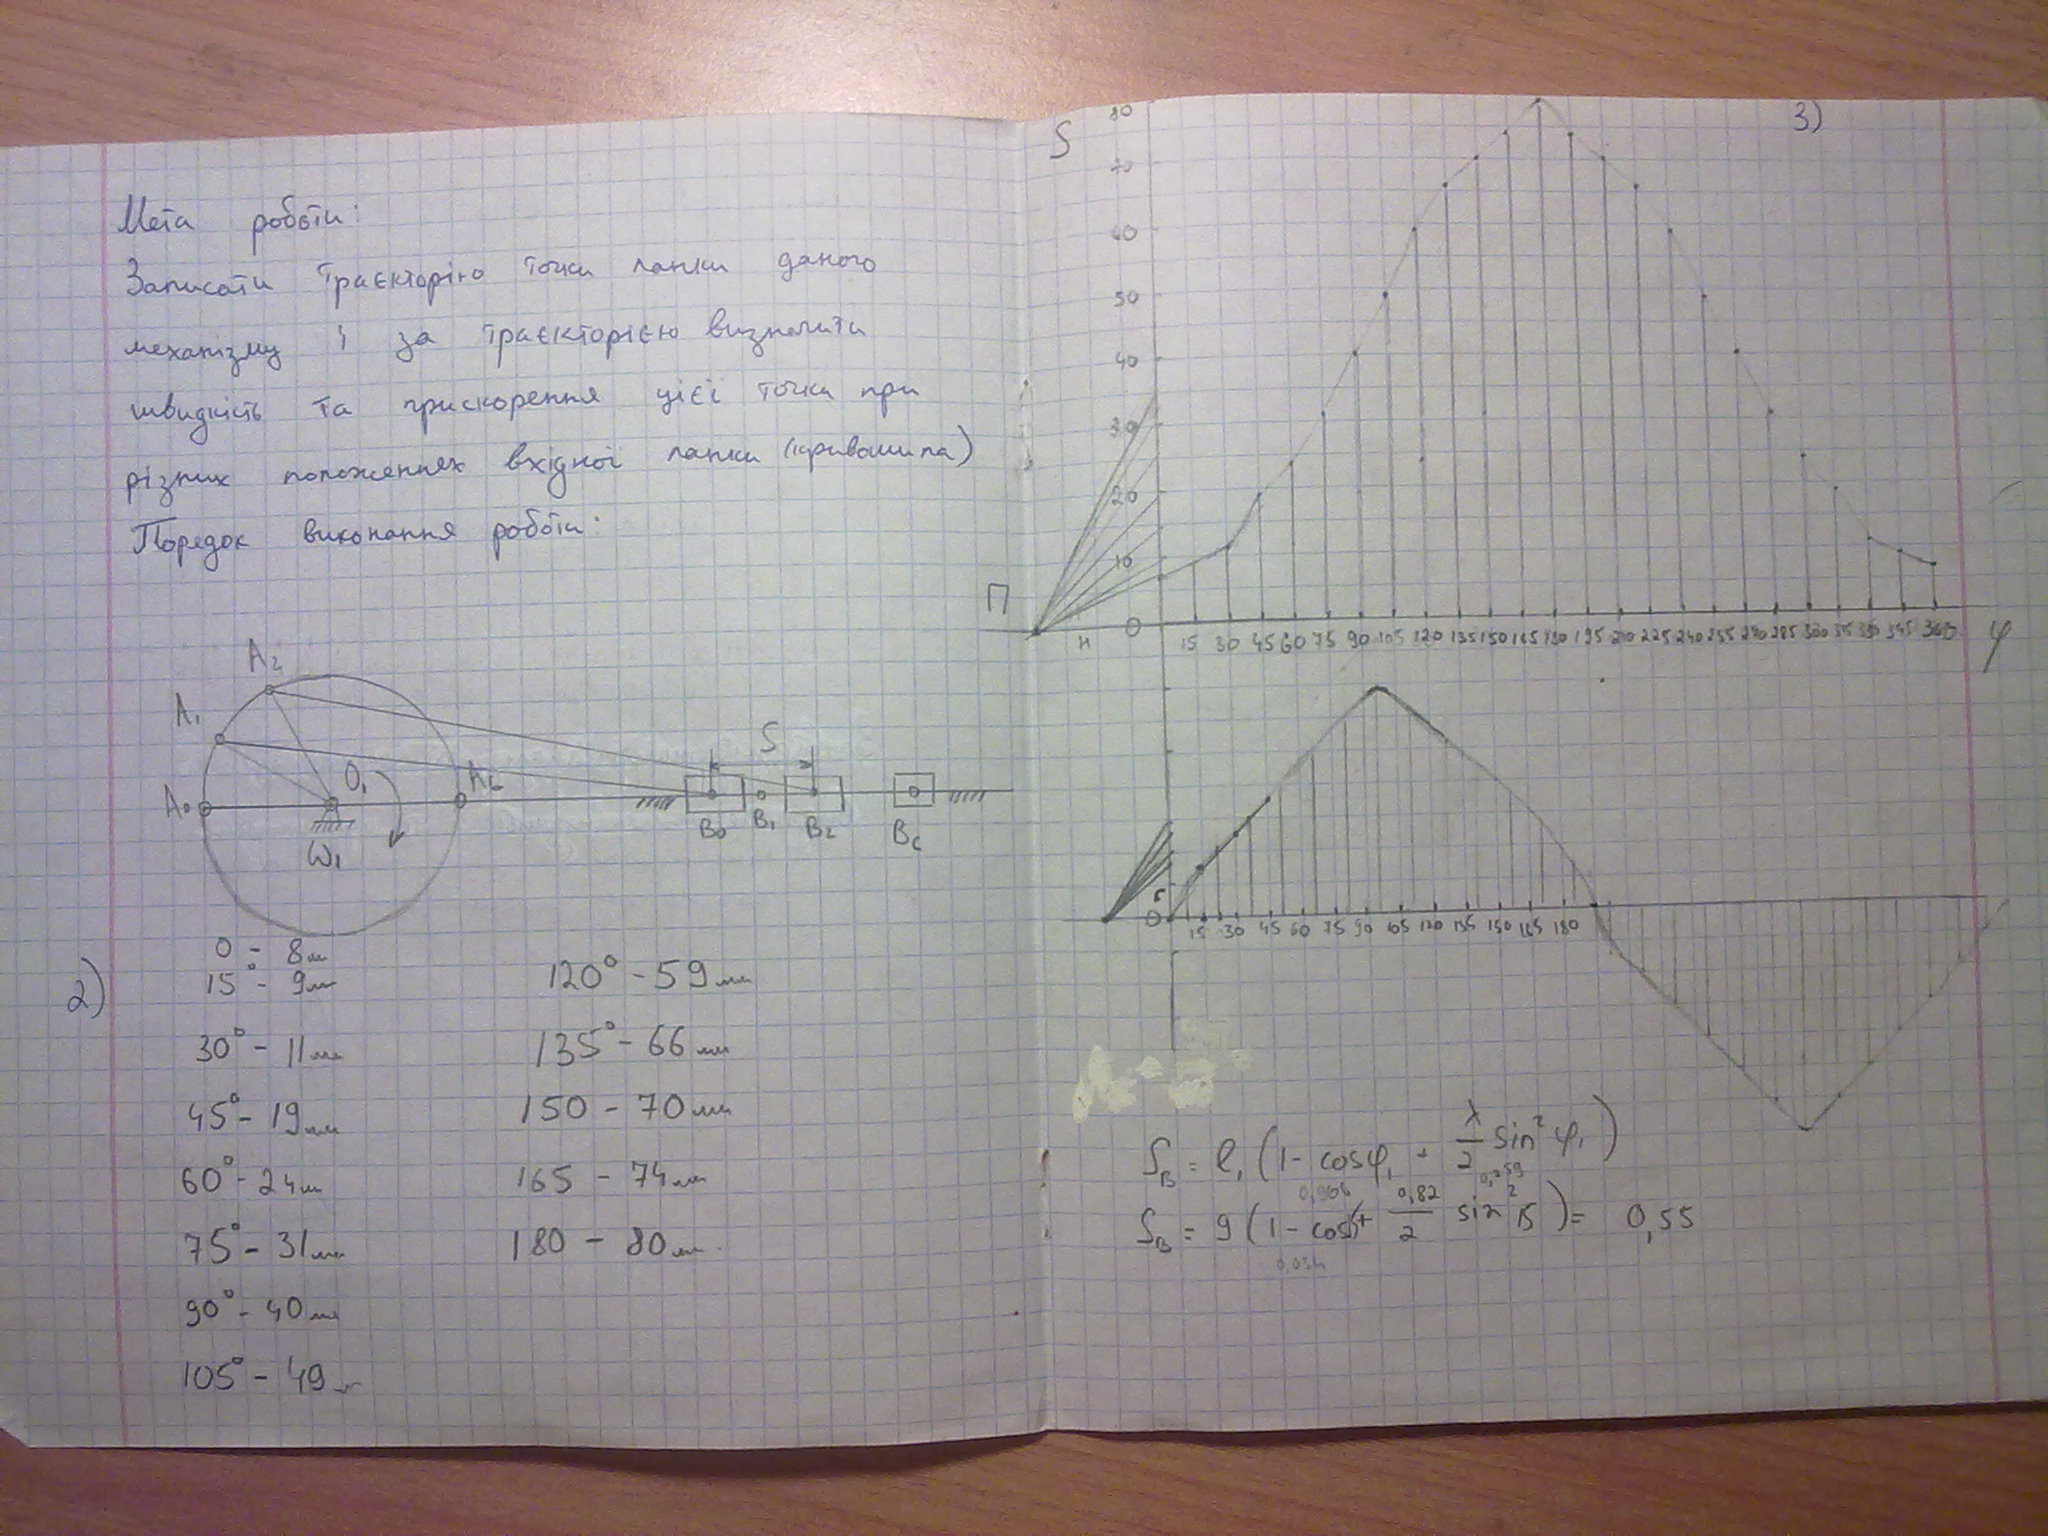 Мета роботи:
Записати траєкторію точки ланки даного
механізму і за траєкторією визначити
швидкість та прискорення цієї точки при
різних положеннях вхідної ланки (кривошипа)
Порядок виконання роботи:
A2
A1
A0
O1
A6
ω1
S
B0 B1 B2 B6
2)
0 - 8м
15° - 9мм
30° - 11мм
45° - 19мм
60° - 24мм
75° - 31мм
90° - 40мм
105° - 49мм
120° - 59мм
135° - 66мм
150 - 70мм
165 - 74мм
180 - 80мм
3)
S
80
70
60
50
40
30
20
10
0
П
н
15 30 45 60 75 90 105 120 135 150 165 180 195 210 225 240 255 270 285 300 315 330 345 360
φ
0
15 30 45 60 75 90 105 120 135 150 165 180
S_B = l₁ (1 - cosφ₁ + λ/2 sin² φ₁)
0,259
S_B = 9 (1 - cos + 0,82/2 sin² 15) = 0,55
0,034